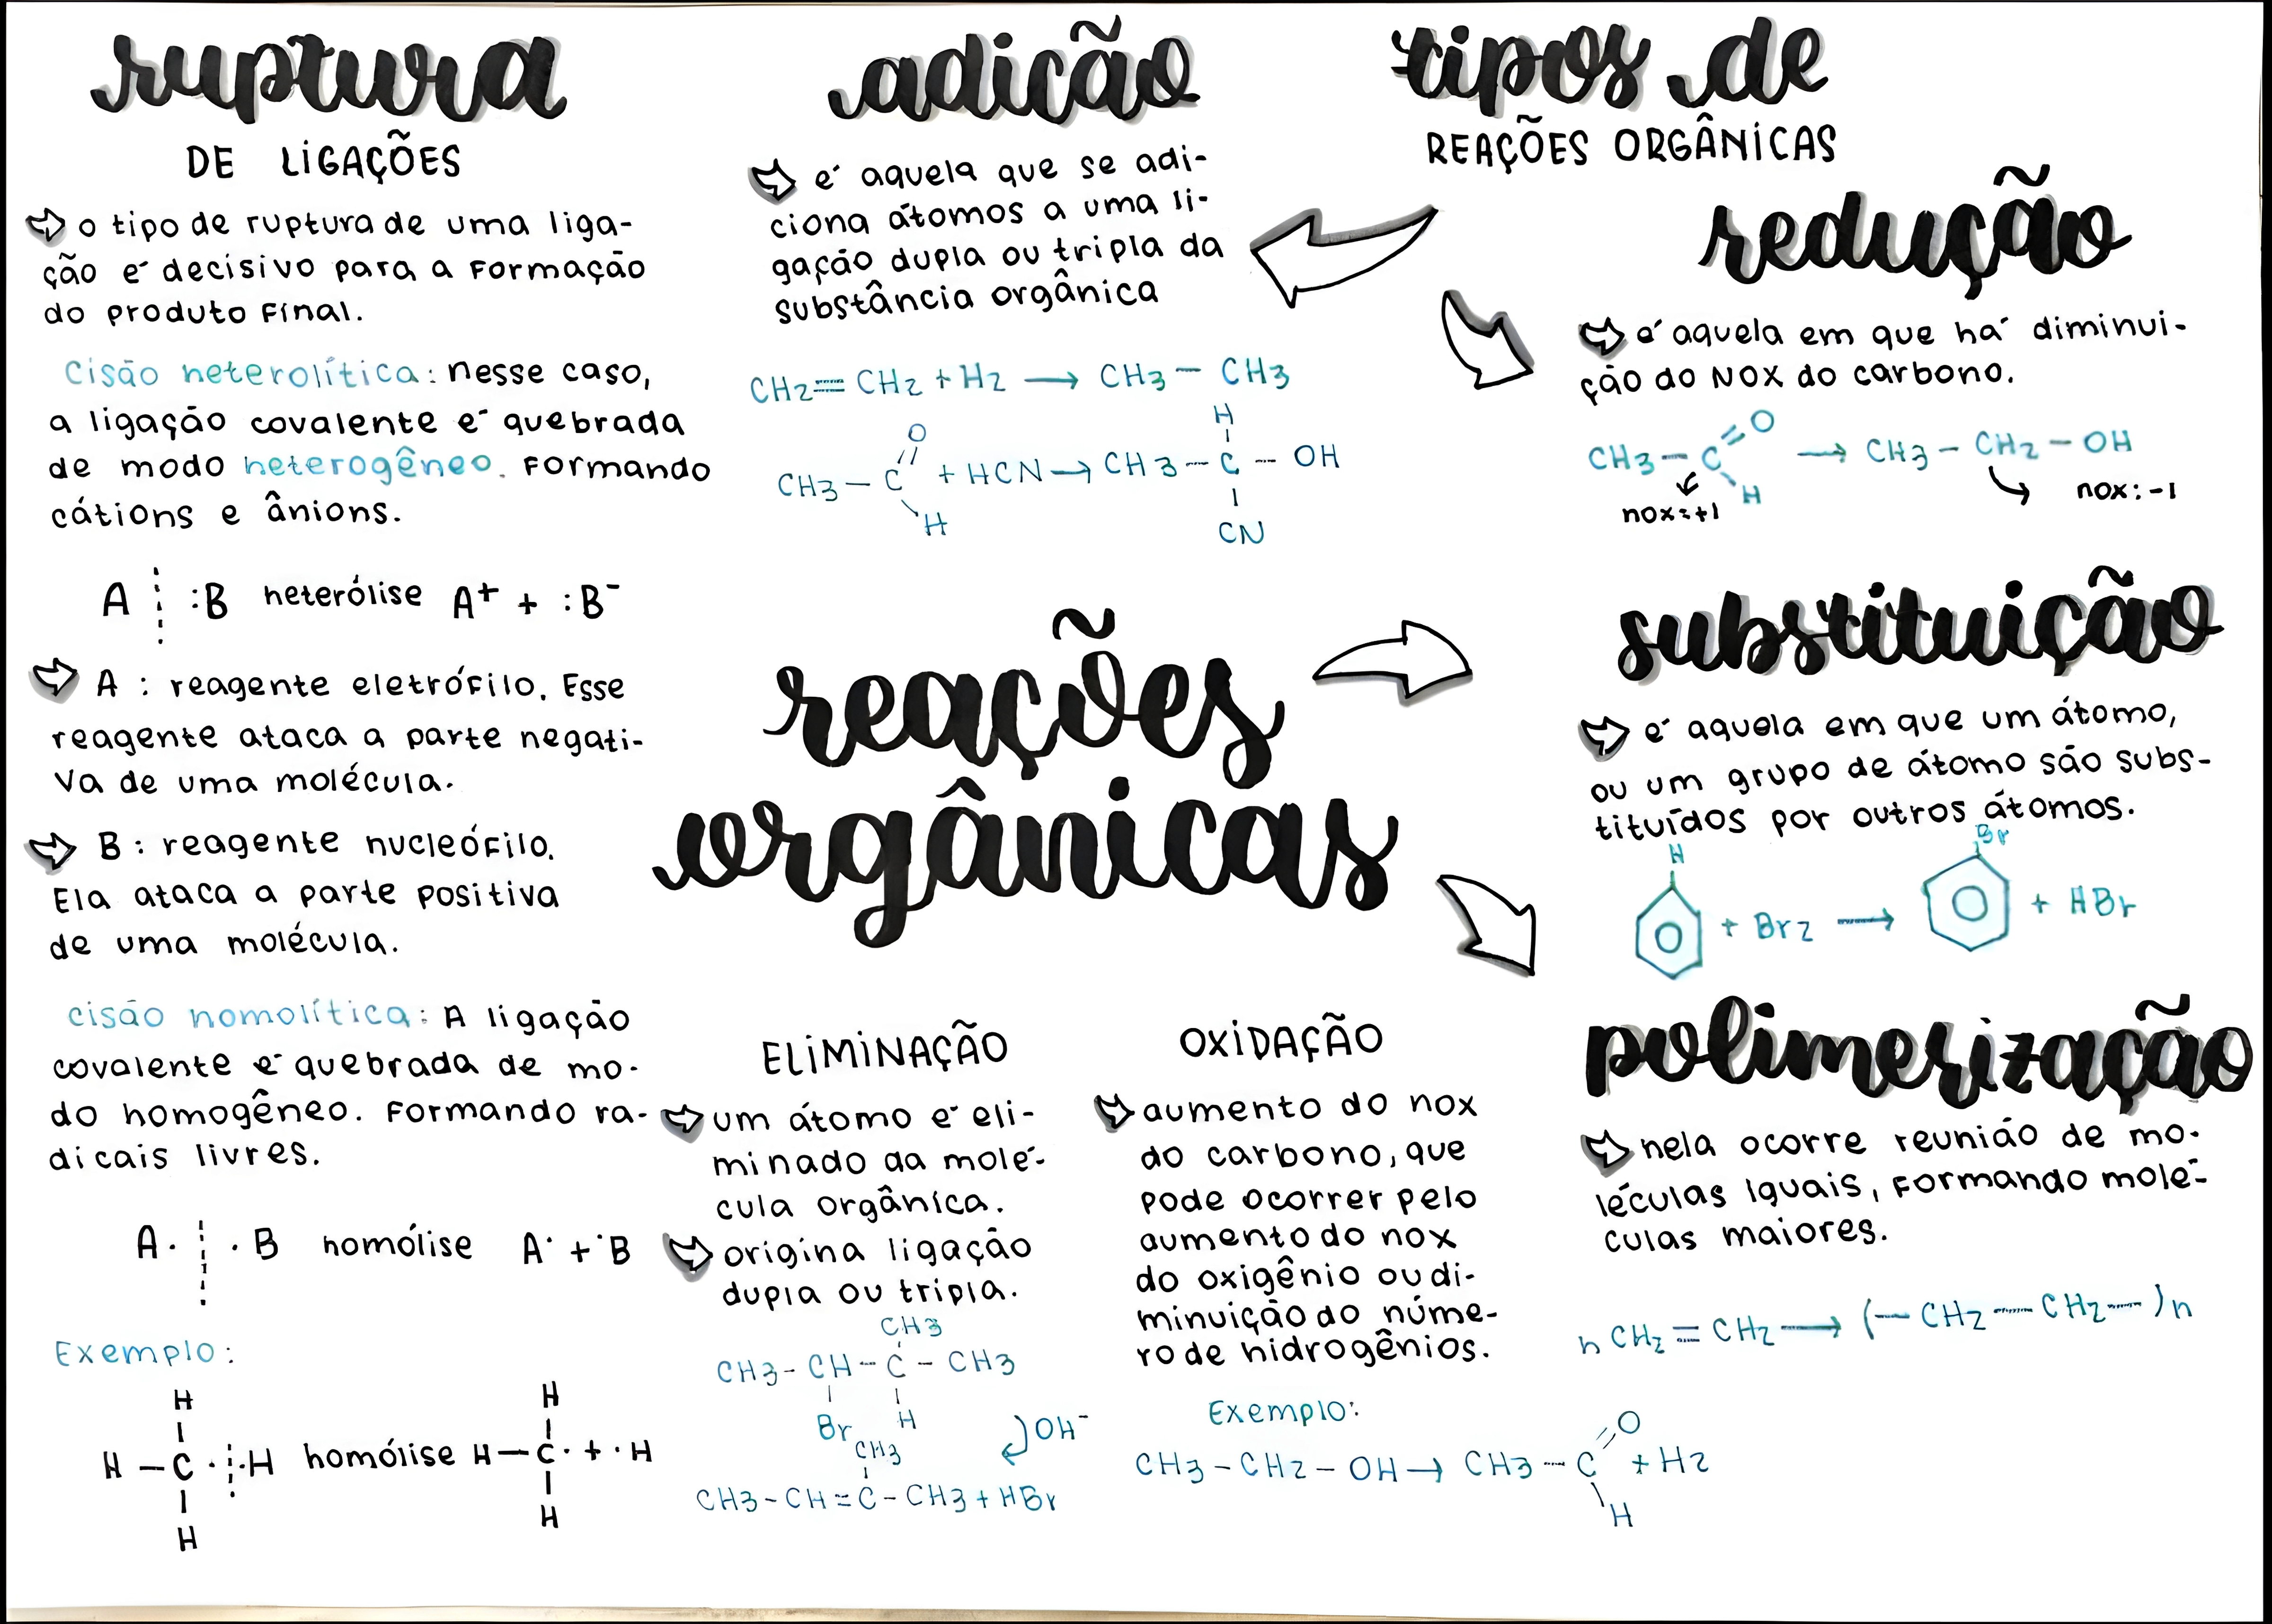 ruptura
DE LIGAÇÕES
o tipo de ruptura de uma liga-
ção é decisivo para a formação
do produto final.
cisão heterolítica: nesse caso,
a ligação covalente é quebrada
de modo heterogêneo. Formando
cátions e ânions.
A ⋮ :B heterólise A⁺ + :B⁻
A : reagente eletrófilo. Esse
reagente ataca a parte negati-
va de uma molécula.
B : reagente nucleófilo.
Ela ataca a parte positiva
de uma molécula.
cisão homolítica: A ligação
covalente é quebrada de mo-
do homogêneo. Formando ra-
dicais livres.
A· ⋮ ·B homólise A· + ·B
Exemplo:
H H
H – C · ⋮ ·H homólise H – C· + ·H
H H
adição
é aquela que se adi-
ciona átomos a uma li-
gação dupla ou tripla da
substância orgânica
CH2 = CH2 + H2 → CH3 – CH3
O H
CH3 – C + HCN → CH3 – C – OH
H CN
tipos de
REAÇÕES ORGÂNICAS
redução
é aquela em que há diminui-
ção do NOX do carbono.
O
CH3 – C → CH3 – CH2 – OH
H
nox:+1 nox: -1
reações
orgânicas
substituição
é aquela em que um átomo,
ou um grupo de átomo são subs-
tituídos por outros átomos.
H Br
+ Br2 → + HBr
ELIMINAÇÃO
um átomo é eli-
minado da molé-
cula orgânica.
origina ligação
dupla ou tripla.
CH3
CH3 - CH - C - CH3
Br H
OH⁻
CH3
CH3 - CH = C - CH3 + HBr
OXIDAÇÃO
aumento do nox
do carbono, que
pode ocorrer pelo
aumento do nox
do oxigênio ou di-
minuição do núme-
ro de hidrogênios.
Exemplo:
O
CH3 – CH2 – OH → CH3 – C + H2
H
polimerização
nela ocorre reunião de mo-
léculas iguais, formando molé-
culas maiores.
n CH2 = CH2 → (– CH2 – CH2 – )n